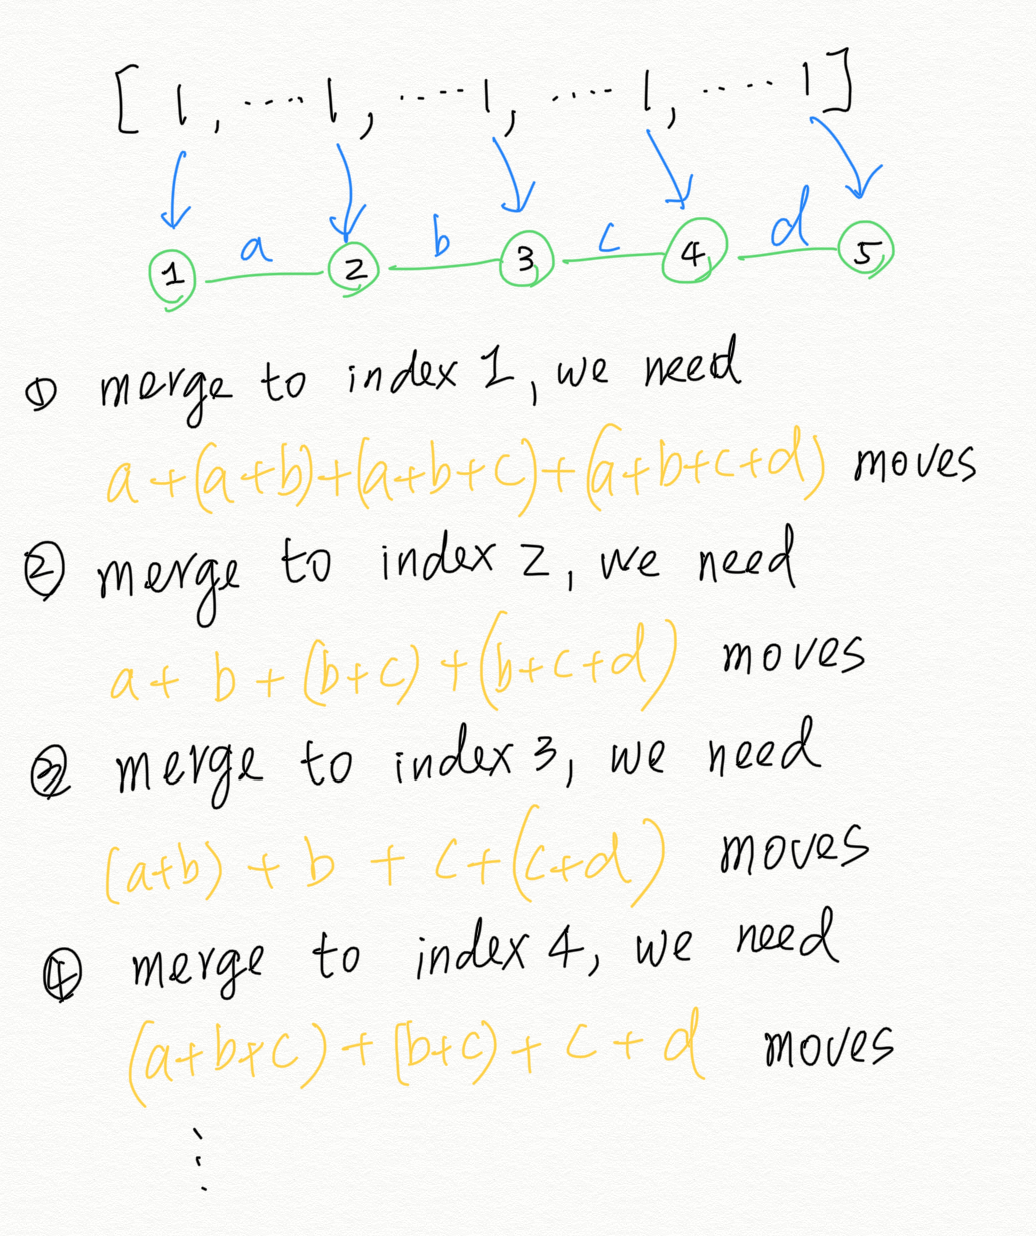 [ 1, ....1, ....1, ....1, ....1]
a b c d
1 2 3 4 5
① merge to index 1, we need
a+(a+b)+(a+b+c)+(a+b+c+d) moves
② merge to index 2, we need
a+ b + (b+c) + (b+c+d) moves
③ merge to index 3, we need
(a+b) + b + c+(c+d) moves
④ merge to index 4, we need
(a+b+c) + (b+c) + c + d moves
⋮